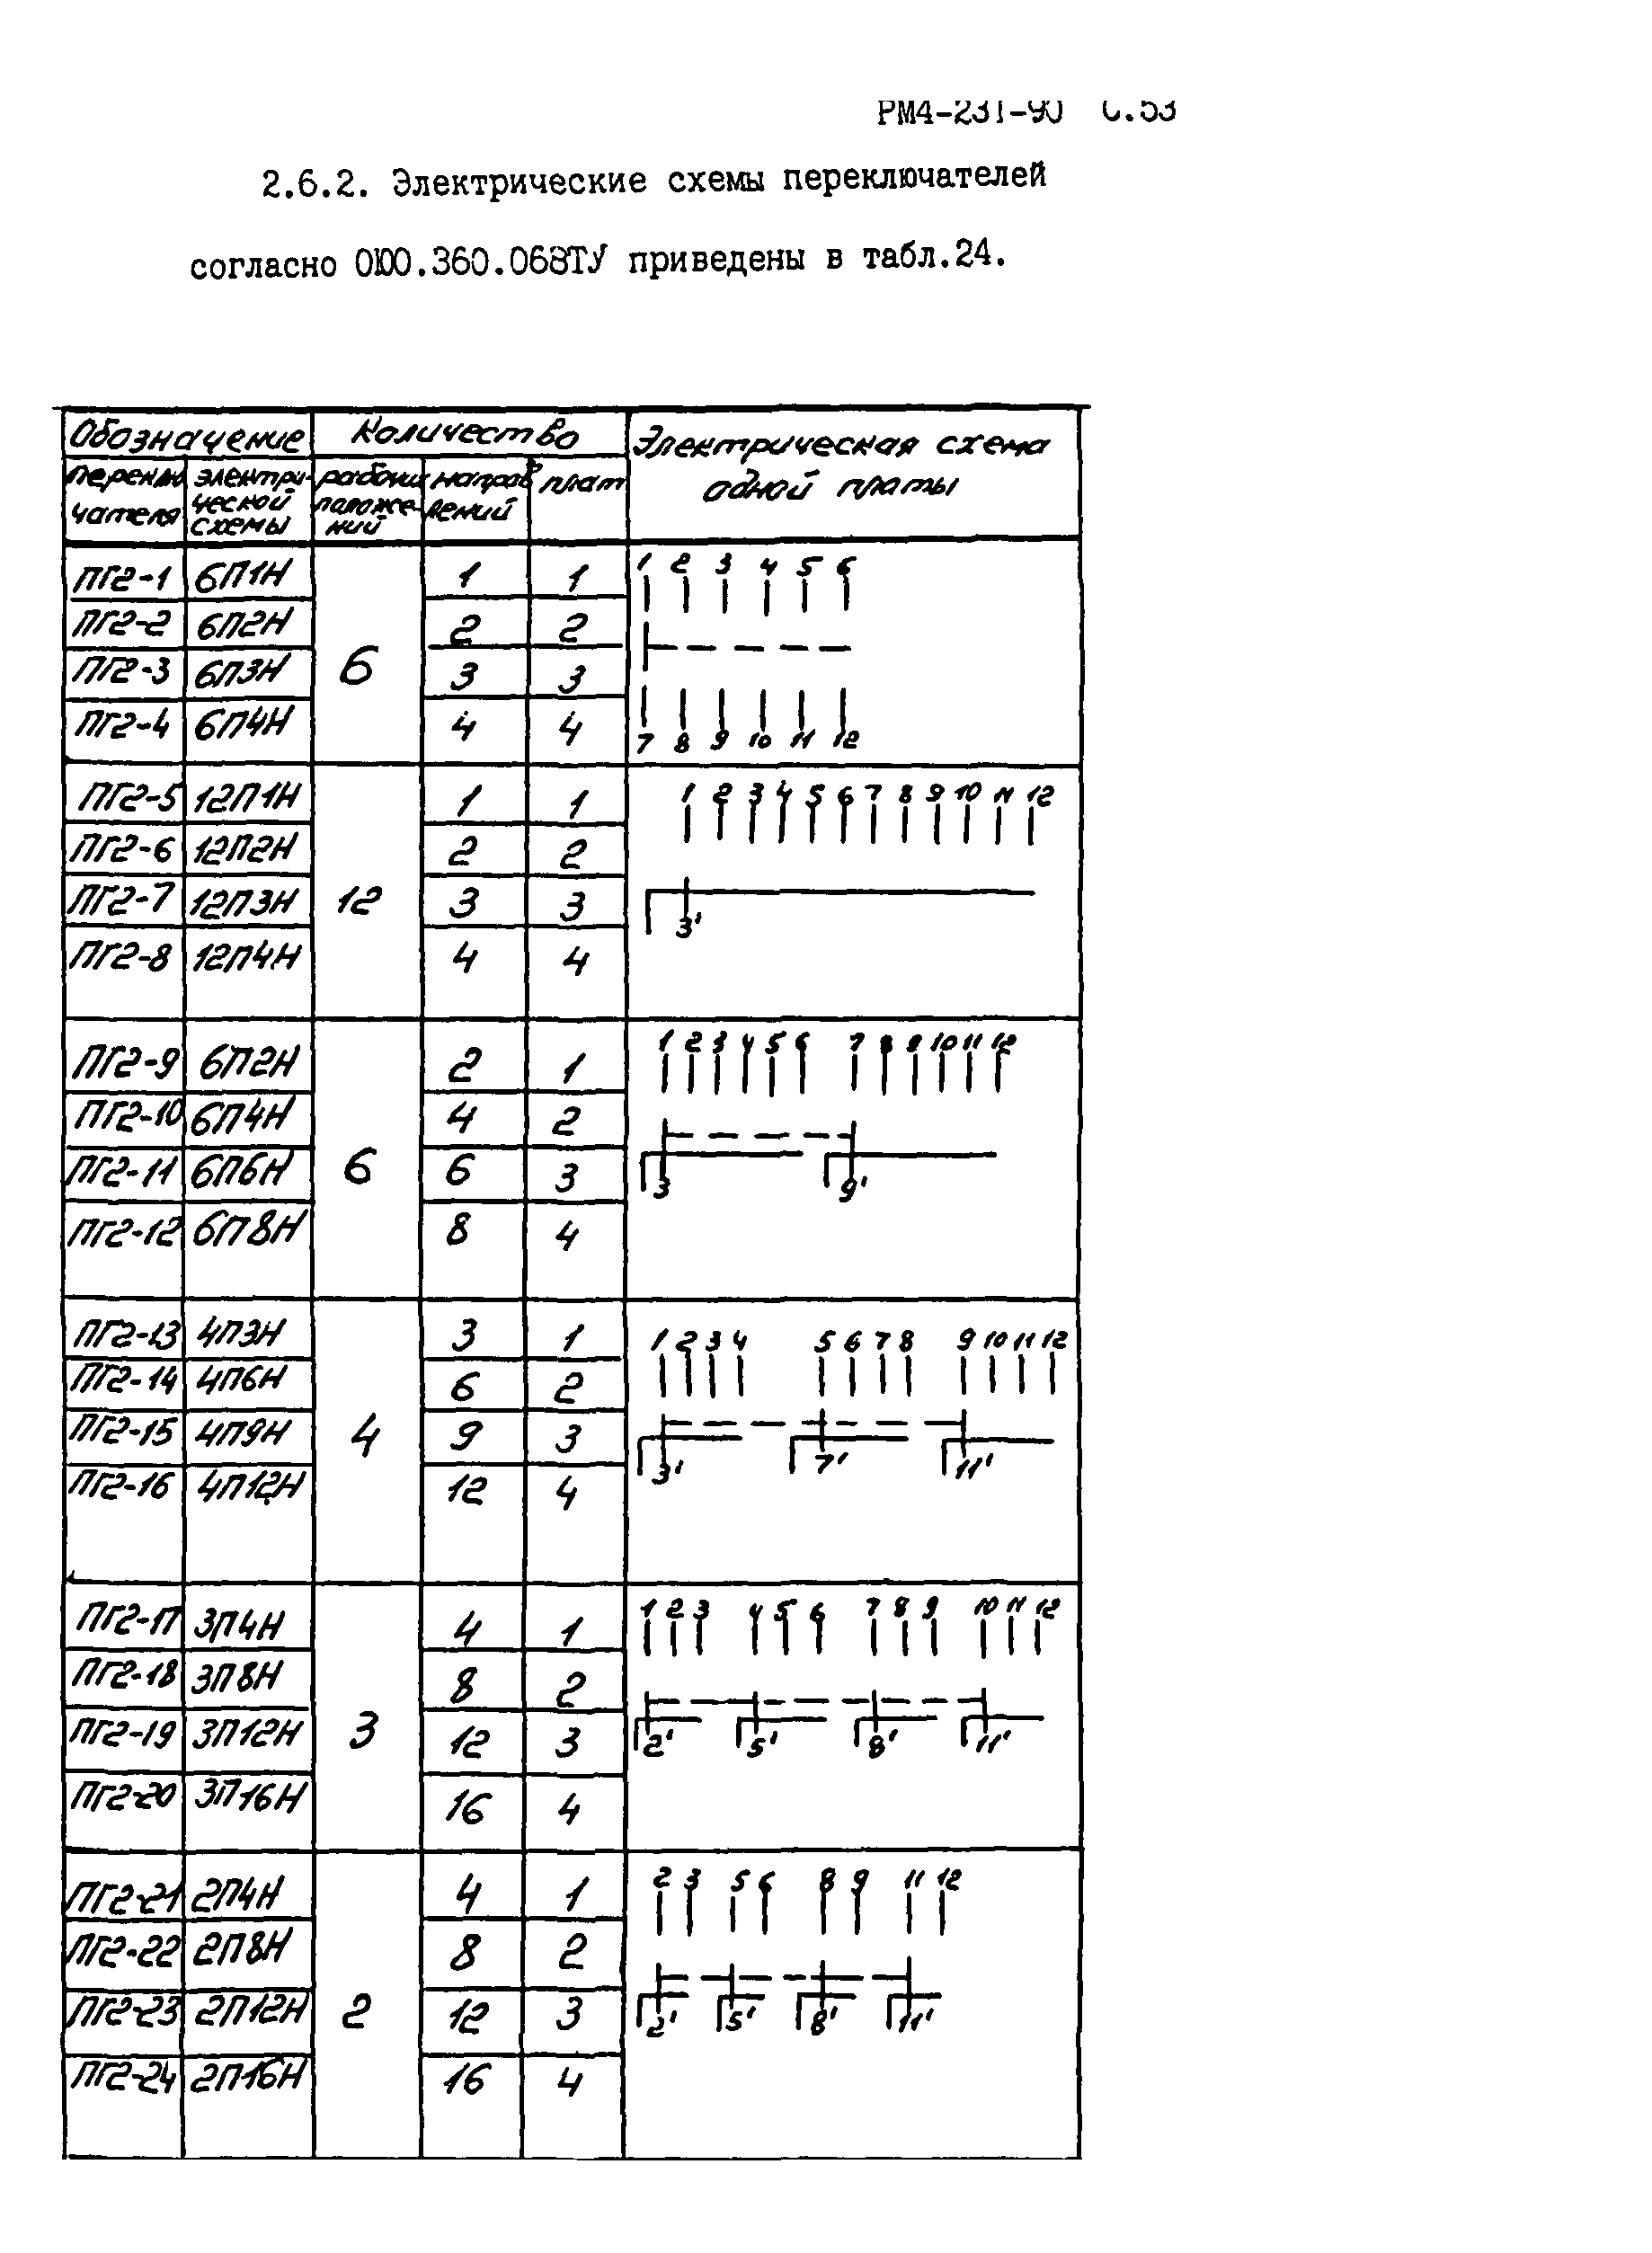 РМ4-231-90 С.53
2.6.2. Электрические схемы переключателей
согласно ОЮО.360.068ТУ приведены в табл.24.
Обозначение Количество Электрическая схема
одной платы
переклю электри- рабочих направ плат
чателя ческой положе- лений
схемы ний
ПГ2-1 6П1Н 6 1 1 1 2 3 4 5 6
ПГ2-2 6П2Н 2 2
ПГ2-3 6П3Н 3 3
ПГ2-4 6П4Н 4 4 7 8 9 10 11 12
ПГ2-5 12П1Н 12 1 1 1 2 3 4 5 6 7 8 9 10 11 12
ПГ2-6 12П2Н 2 2
ПГ2-7 12П3Н 3 3 3'
ПГ2-8 12П4Н 4 4
ПГ2-9 6П2Н 6 2 1 1 2 3 4 5 6 7 8 9 10 11 12
ПГ2-10 6П4Н 4 2
ПГ2-11 6П6Н 6 3 3 9'
ПГ2-12 6П8Н 8 4
ПГ2-13 4П3Н 4 3 1 1 2 3 4 5 6 7 8 9 10 11 12
ПГ2-14 4П6Н 6 2
ПГ2-15 4П9Н 9 3 3' 7' 11'
ПГ2-16 4П12Н 12 4
ПГ2-17 3П4Н 3 4 1 1 2 3 4 5 6 7 8 9 10 11 12
ПГ2-18 3П8Н 8 2
ПГ2-19 3П12Н 12 3 2' 5' 8' 11'
ПГ2-20 3П16Н 16 4
ПГ2-21 2П4Н 2 4 1 2 3 5 6 8 9 11 12
ПГ2-22 2П8Н 8 2
ПГ2-23 2П12Н 12 3 2' 5' 8' 11'
ПГ2-24 2П16Н 16 4